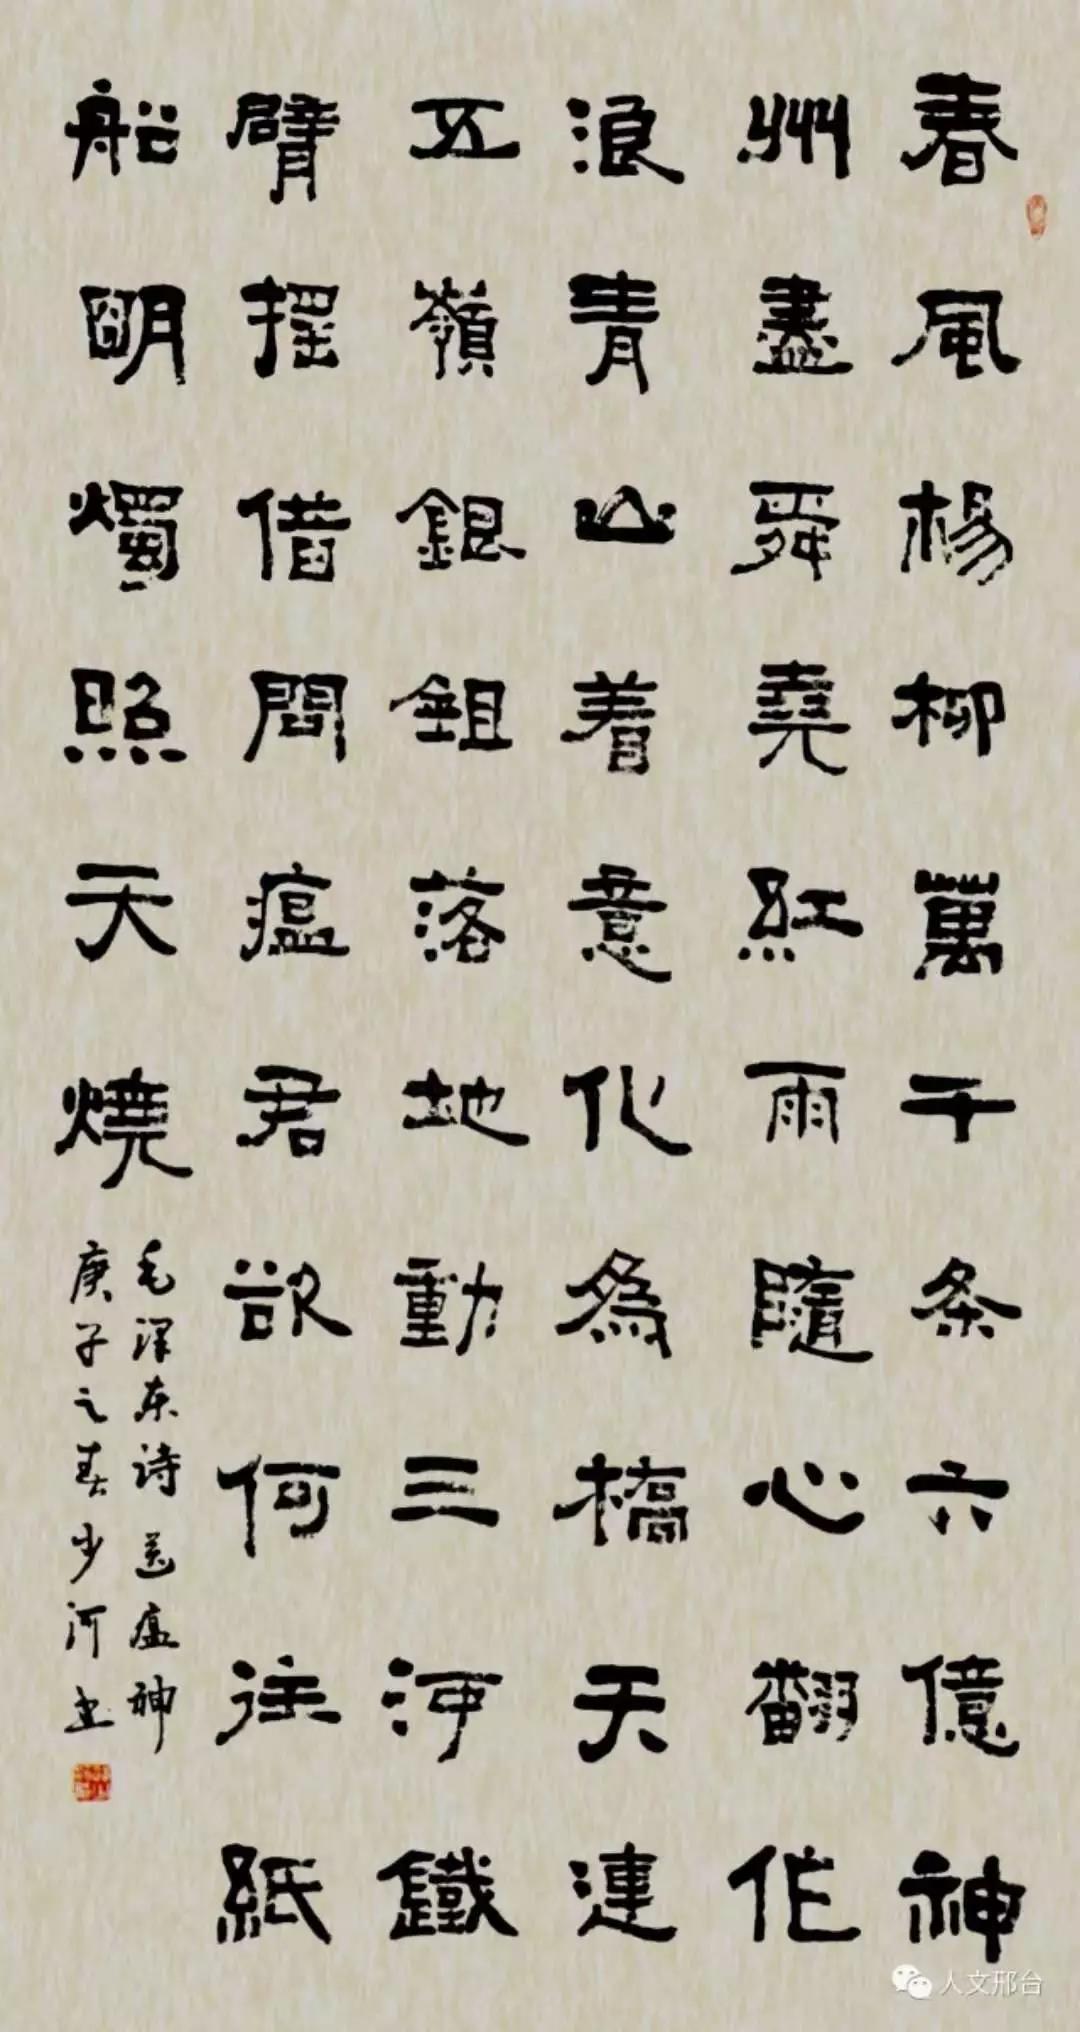 春風楊柳萬千条六億神
州盡舜堯紅雨隨心翻作
浪青山着意化為橋天連
五嶺銀鉏落地動三河鐵
臂摇借問瘟君欲何往紙
船明燭照天燒
毛泽东诗送瘟神
庚子之春少河书
人文邢台